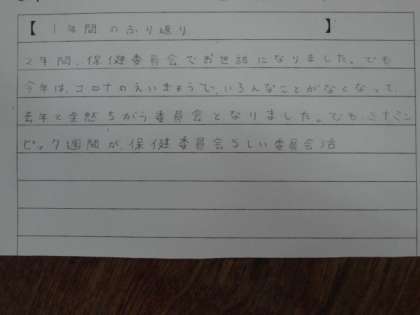 【 1年間のふり返り 】
2年間、保健委員会でお世話になりました。でも
今年は、コロナのえいきょうで、いろんなことがなくなって、
去年と全然ちがう委員会となりました。でも
ピック週間が、保健委員会らしい委員会活